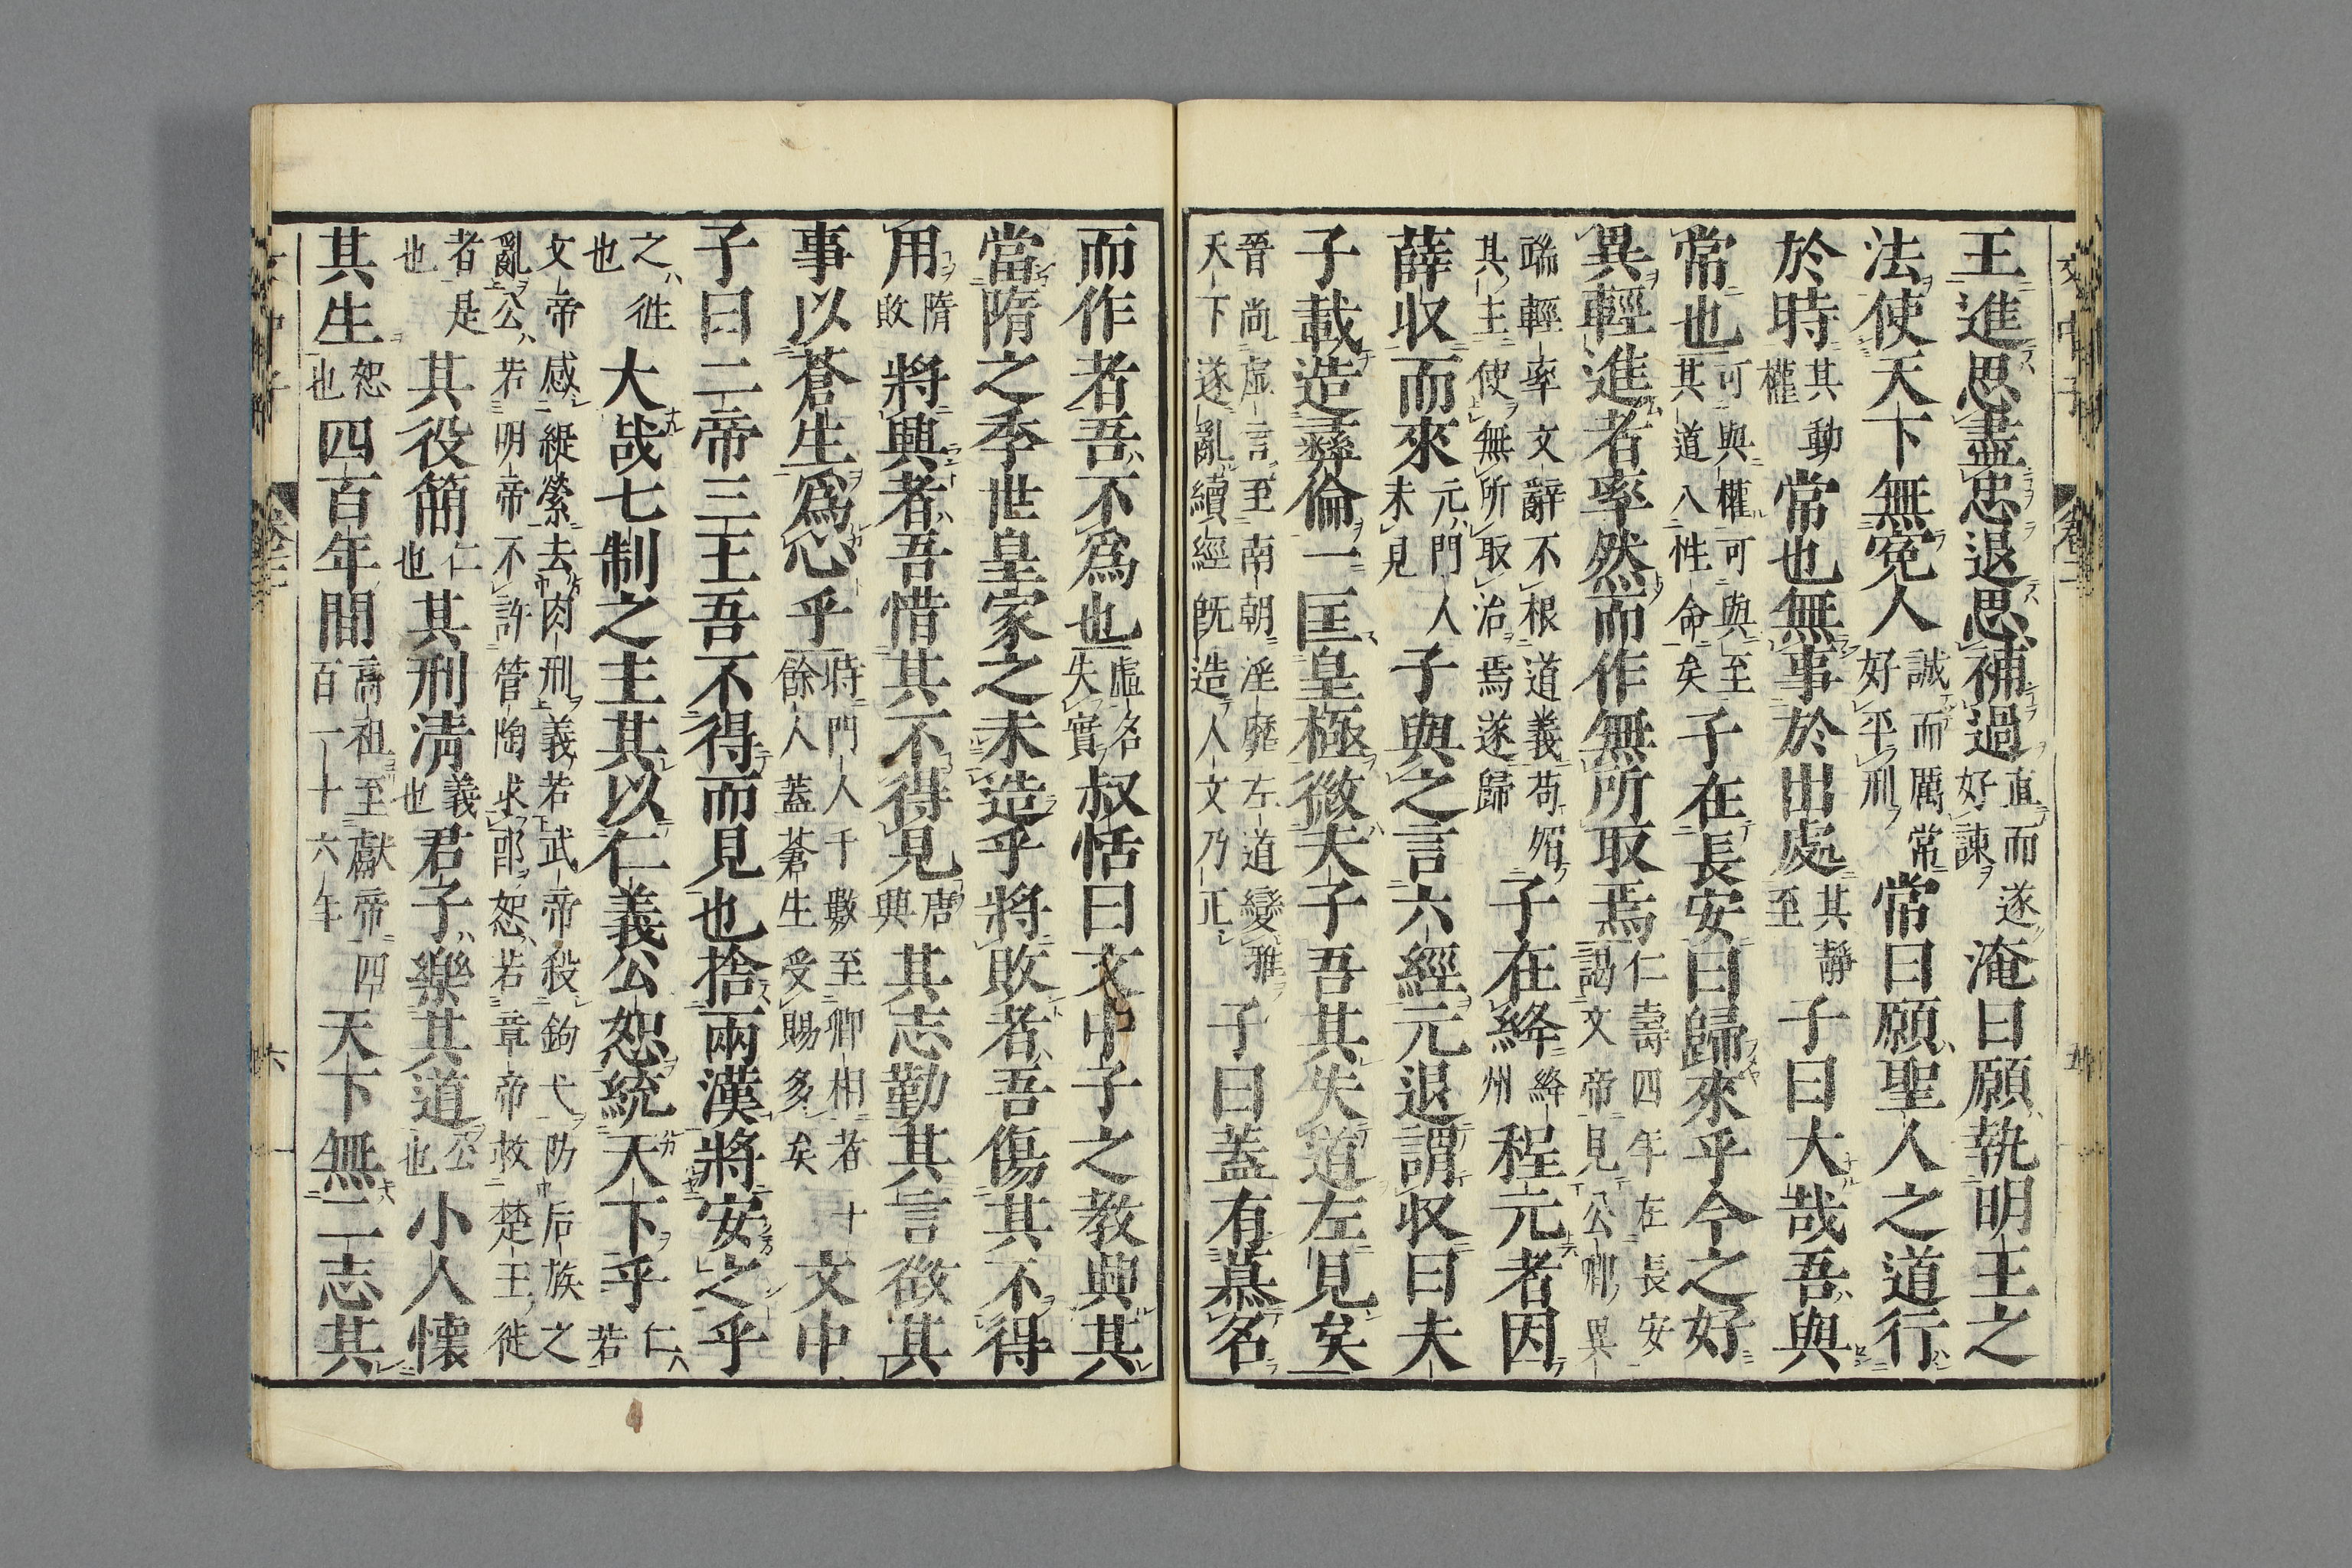 王進思盡忠退思補過直而遂好諫淹曰願執明王之
法使天下無冤人誠而厲常好平刑常曰願聖人之道行
於時其動權常也無事於出處其靜至子曰大哉吾與
常也可與權可與至其道八性命矣子在長安曰歸來乎今之好
異輕進者率然而作無所取焉仁壽四年在長安謁文帝見公卿異
端輕率文辭不根道義苟媚其主使無所取治焉遂歸子在絳絳州程元者因
薛收而來元門人未見子與之言六經元退謂收曰夫
子載造彝倫一匡皇極微夫子吾其失道左見矣
晉尚虛言至南朝淫靡左道變雅天下遂亂續經既造人文乃正子曰蓋有慕名
而作者吾不為也虛名失實叔恬曰文中子之教興其
當隋之季世皇家之未造乎將敗者吾傷其不得
用隋敗將興者吾惜其不得見唐興其志勤其言徵其
事以蒼生爲心乎時門人千數至卿相者十餘人蓋蒼生受賜多矣文中
子曰二帝三王吾不得而見也捨兩漢將安之乎
之徃也大哉七制之主其以仁義公恕統天下乎仁若
文帝感緹縈去肉刑義若武帝殺鉤弋防后族之亂公若明帝不許管陶求郎恕若章帝救楚王徙
者是也其役簡仁也其刑清義也君子樂其道公也小人懷
其生恕也四百年間高祖至獻帝四百一十六年天下無二志其
文中子
卷三
五
六